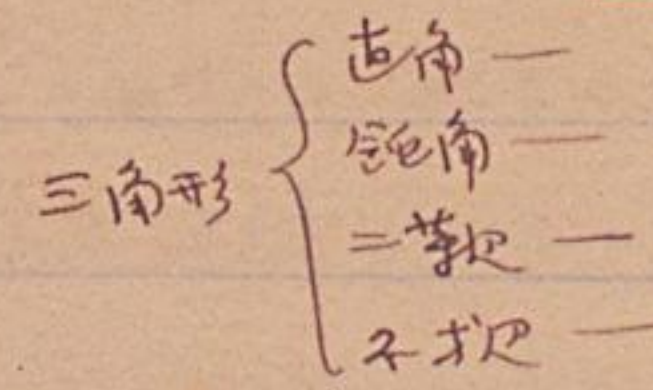 三角形
直角 —
鈍角 —
二等辺 —
不等辺 —